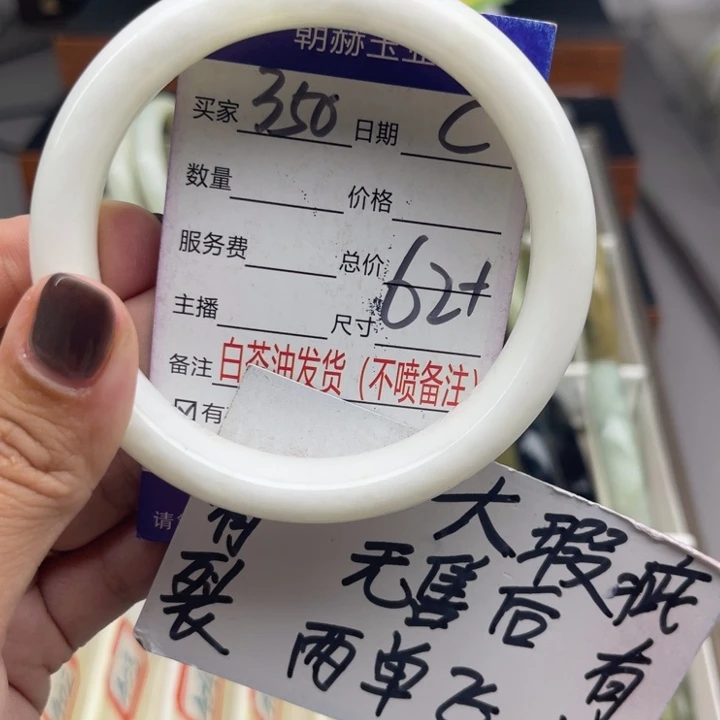 朝赫玉
买家 350 日期 C
数量 价格
服务费 总价 62+
主播 尺寸
备注 白茶油发货（不喷备注）
有
请
有裂
大瑕疵
无售后 有
两单飞